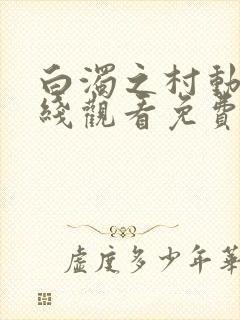 白濁之村動
綫觀看免費
虛度多少年華